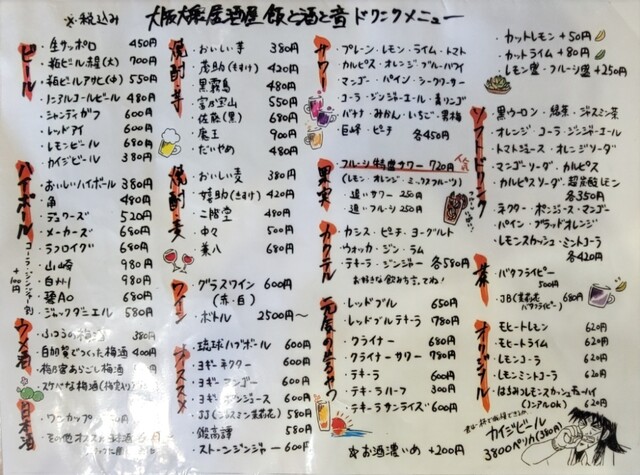 ※税込み
大阪大衆居酒屋 飯と酒と音 ドリンクメニュー
ビール
・生サッポロ 450円
・瓶ビール赤星(大) 700円
・瓶ビールアサヒ(中) 550円
・ノンアルコールビール 480円
・シャンディガフ 600円
・レッドアイ 600円
・レモンビール 680円
・カイジビール 380円
ハイボール
コーラ・ジンジャー割
+100円
・おいしいハイボール 380円
・角 480円
・デュワーズ 520円
・メーカーズ 680円
・ラフロイグ 680円
・山崎 980円
・白州 980円
・碧Ao 680円
・ジャックダニエル 580円
ウメ酒
・ふつうの梅酒 380円
・自家製でつくった梅酒 400円
・梅乃宿あらごし梅酒 580円
・スケベな梅酒(梅実入り)
日本酒
・ワンカップ
・その他オススメ
焼酎・芋
・おいしい芋 380円
・茂助(もすけ) 420円
・黒霧島 480円
・富乃宝山 550円
・佐藤(黒) 680円
・魔王 900円
・だいやめ 480円
焼酎・麦
・おいしい麦 380円
・嬉助(きすけ) 420円
・二階堂 480円
・中々 500円
・兼八 680円
ワイン
・グラスワイン 600円
(赤・白)
・ボトル 2500円〜
オススメ
・琉球ハブボール 600円
・ヨギーネクター 600円
・ヨギーマンゴー 600円
・ヨギージンジュース 600円
・JJ(ジャスミン茉莉花) 580円
・鍛高譚 580円
・ストーンジンジャー 600円
サワー
・プレーン・レモン・ライム・トマト
・カルピス・オレンジ・ブルーハワイ
・マンゴー・パイン・シークワーサー
・コーラ・ジンジャーエール・青リンゴ
・バナナ・みかん・いちご・黒梅
・巨峰・ピーチ 各450円
果実
・フルーツ特盛サワー 720円
(レモン・オレンジ・ミックスフルーツ)
・追いサワー 250円
・追いフルーツ 250円
カクテル
・カシス・ピーチ・ヨーグルト
・ウォッカ・ジン・ラム
・テキーラ・ジンジャー 各580円
お好きな飲み方言ってね!
元気の出るやつ
・レッドブル 650円
・レッドブルテキーラ 780円
・クライナー 680円
・クライナーサワー 780円
・テキーラ 600円
・テキーラハーフ 300円
・テキーラサンライズ 600円
☆お酒濃いめ +200円
・カットレモン +50円
・カットライム +80円
・レモン盛・フルーツ盛 +250円
ソフトドリンク
・黒ウーロン・緑茶・ジャスミン茶
・オレンジ・コーラ・ジンジャーエール
・トマトジュース・オレンジソーダ
・マンゴーソーダ・カルピス
・カルピスソーダ・超炭酸レモン
各350円
・ネクター・ポンジュース・マンゴー
・パイン・ブラッドオレンジ
・レモンスカッシュ・ミントコーラ
各420円
茶
・バタフライピー
500円
・JB(茉莉花バタフライピー) 680円
オリジナル
・モヒートレモン 620円
・モヒートコーラ 620円
・レモンコーラ 620円
・レモンミントコーラ 620円
・はちみつレモンスカッシュチューハイ
(ノンアルOK) 620円
カイジビール
3800ペリカ(380円)